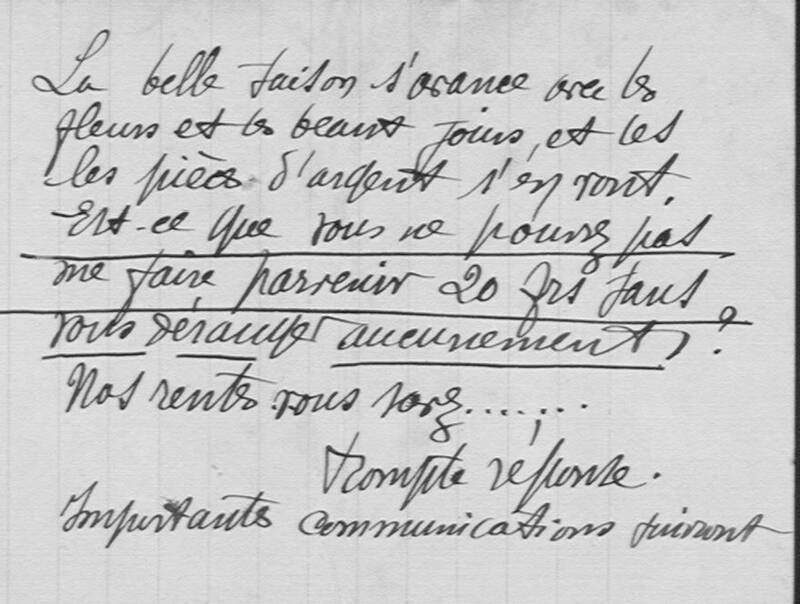 La belle saison s'avance avec les
fleurs et les beaux jours, et les
les pièces d'argent s'en vont.
Est-ce que vous ne pouvez pas
me faire parvenir 20 frs sans
vous déranger aucunement ?
Nos rentes vous savez.......
Prompte réponse.
Importantes communications suivront